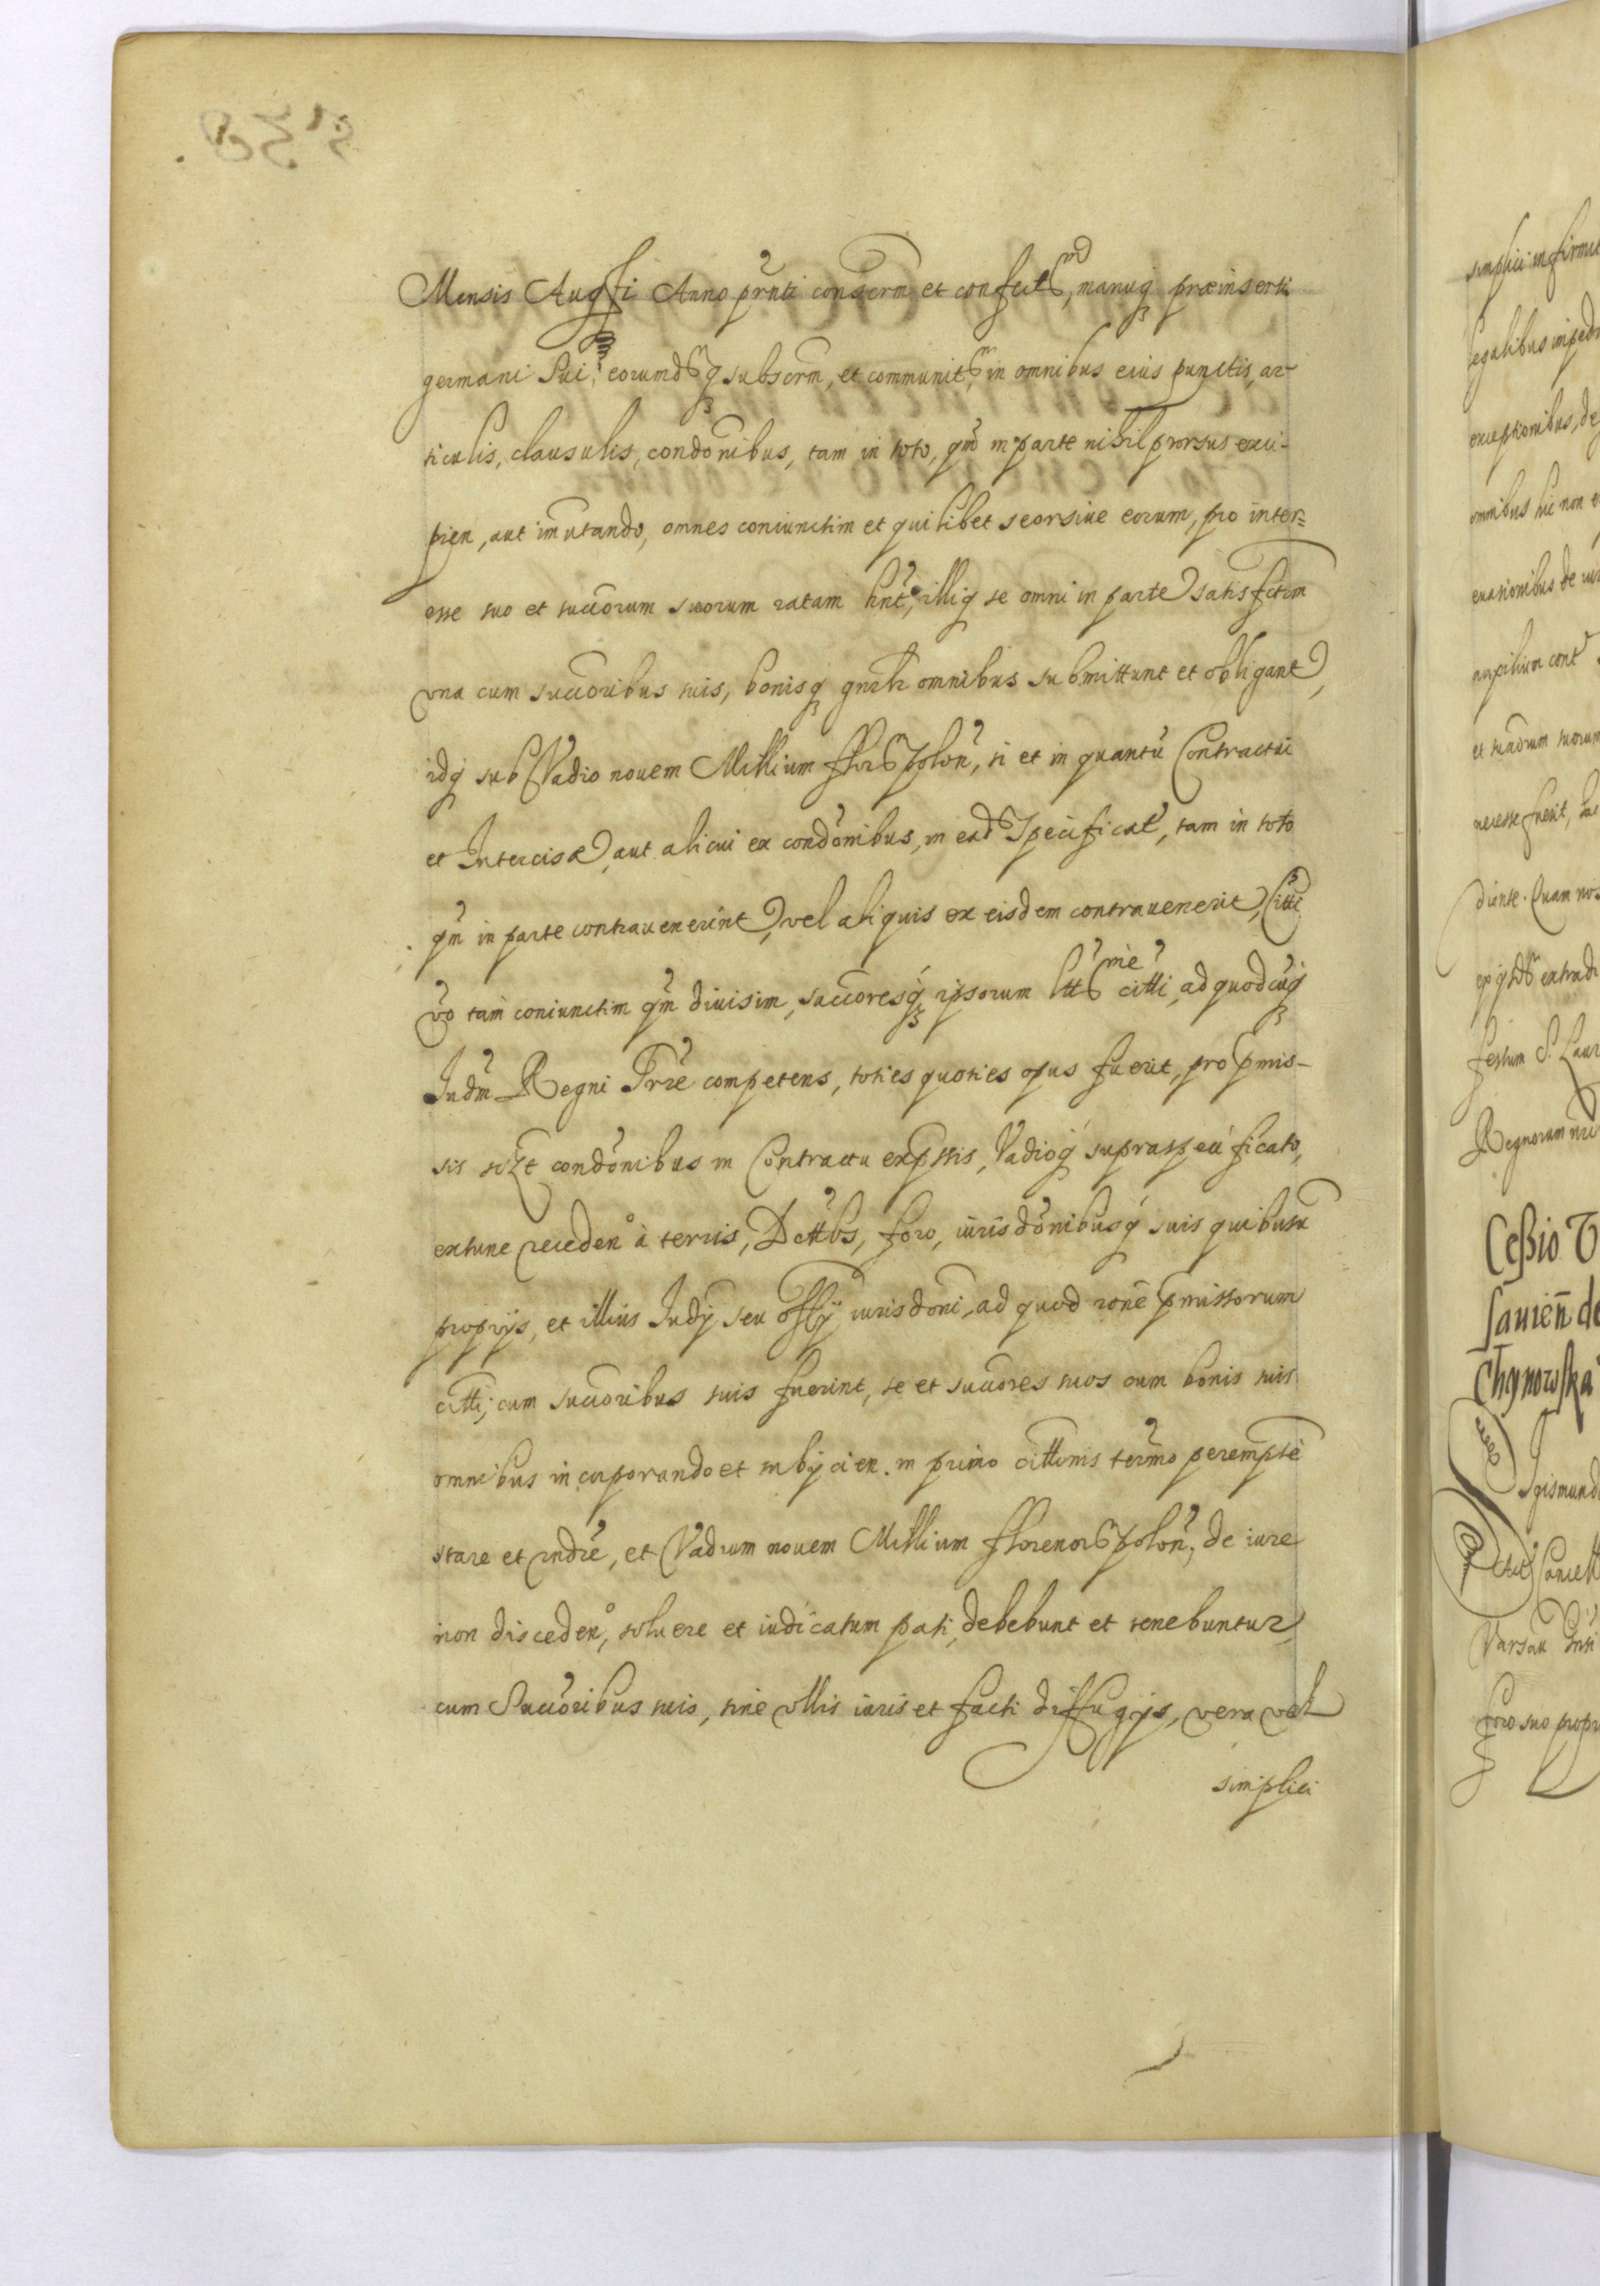 Mensis Augsti Anno prñti conscrm et confectm, manuq præinserti
germani Sui, eorumdmq subscrm, et communitm, in omnibus eius punctis, ar-
ticulis, clausulis, condõnibus, tam in toto, qm̃ in parte nihil prorsus exci-
pien, aut im̃utando, omnes coniunctim et quilibet seorsiue eorum, pro inter=
esse suo et succorum suorum ratam hñt, illiq se omni in parte satisfctim
vna cum succoribus suis, bonisq gnrli omnibus submittunt et obligant,
idq sub Vadio nouem Millium fflor polon, si et in quantũ Contractui
et Intercisæ, aut alicui ex condõnibus, in ead specificat, tam in toto
qm̃ in parte contrauenerint, vel aliquis ex eisdem contrauenerit, Citti
vo tam coniunctim qm̃ diuisim, succoresq ipsorum ltt me citti, ad quodcuq
Judm Regni Trre competens, toties quoties opus fuerit, pro pmis-
sis et condõnibus in Contractu expssis, Vadioq supraspecificato,
extunc receden à terris, Dcttbs, foro, iurisdõnibusq suis quibusu
proprijs, et illius Judy seu Offy iurisdõni, ad quod rone pmissorum
citti, cum succoribus suis fuerint, se et succores suos cum bonis suis
omnibus incorporando et subijcien. in primo cittonis termo perempte
stare et rndre, et Vadium nouem Millium fflorenor polon, de iure
non disceden, soluere et iudicatum pati, debebunt et tenebuntur,
cum Succoribus suis, sine vllis iuris et facti diffugijs, vera vel
simplici
simplici infirmit
legalibus imped
exceptionibus, de
omnibus hic non e
euasionibus de iur
auxilium cont
et succrum suorum
necesse fuerit, hac
diente. Quam nos
festum S. Laur
Regnorum nr
Cessio
Sauien de
Chynowska
Sgismund
Cancell
Varsau
foro suo propr